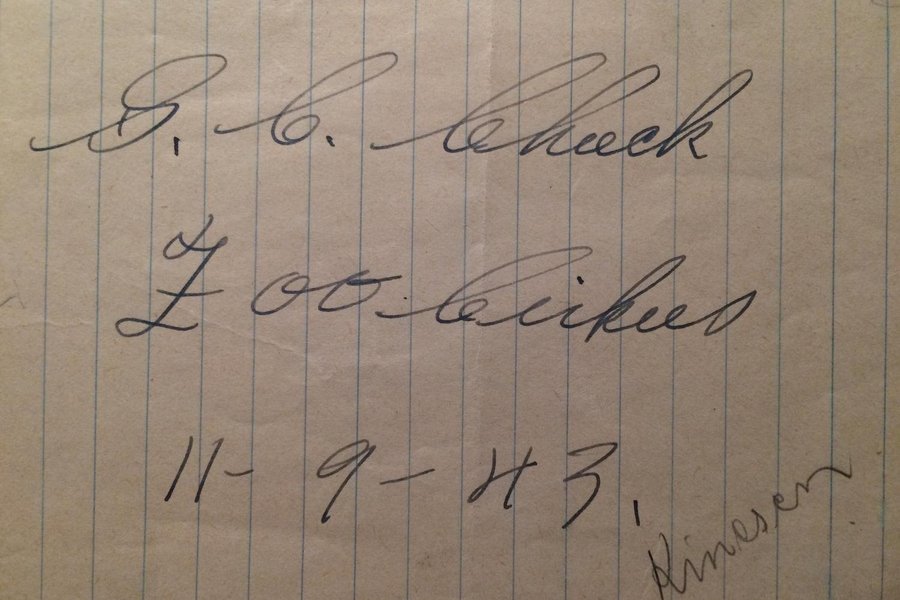 G. C. Chuck
Zoo Cirkus
11-9-43.
Kinesen